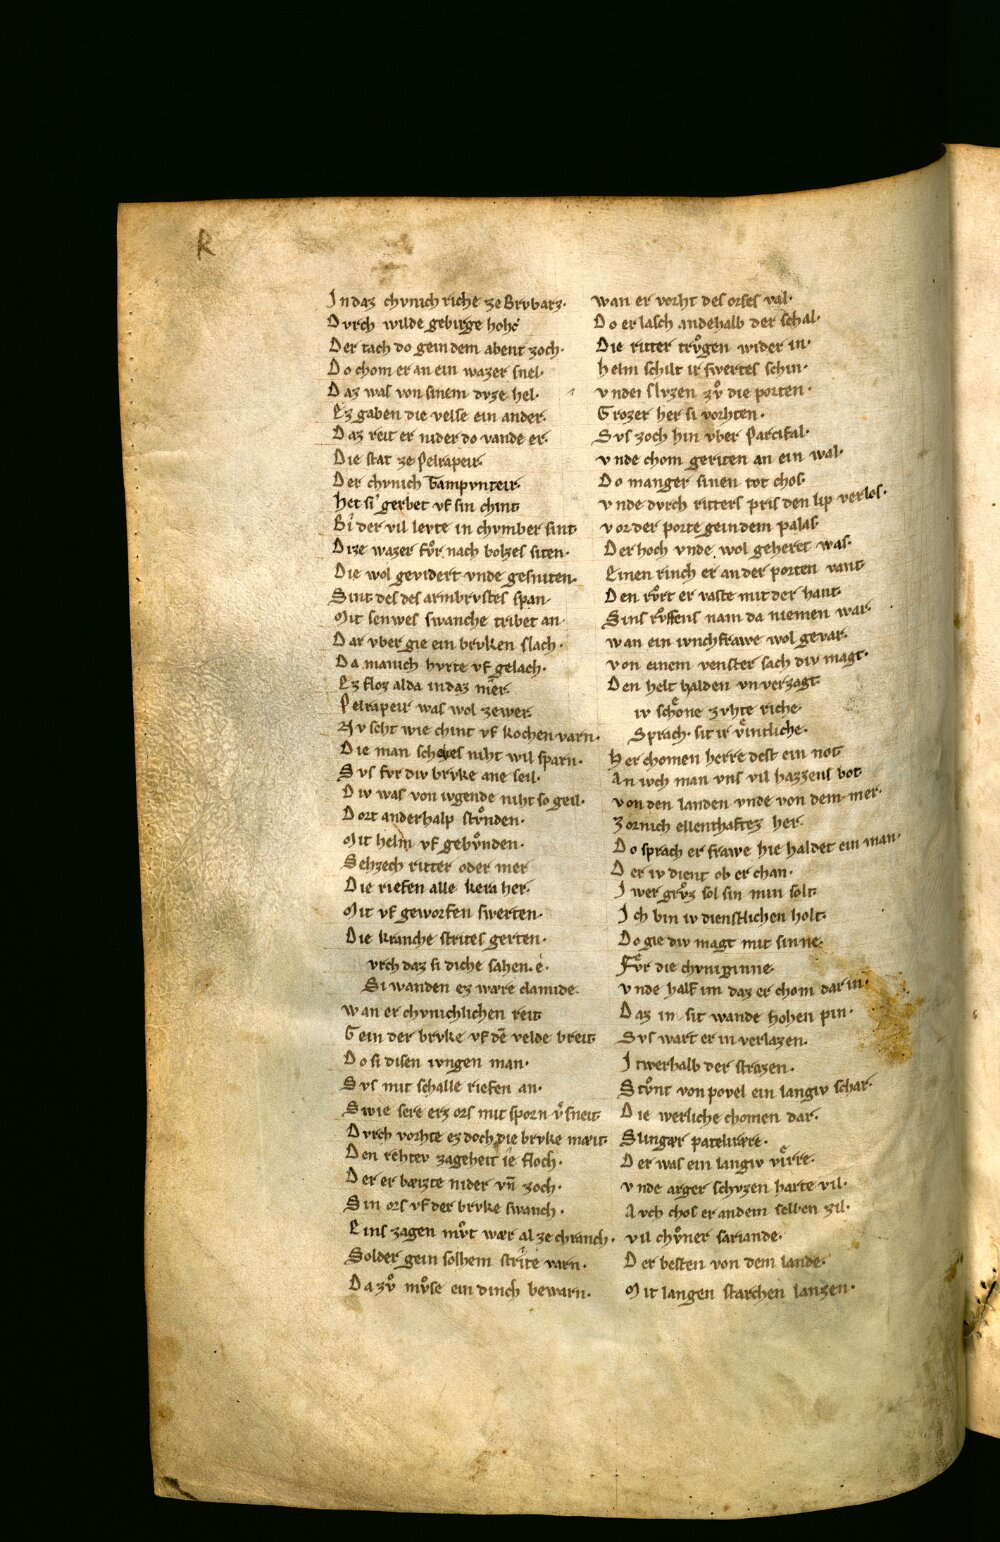 R
In daz chvnich riche ze Brvbarz·
Dvrch wilde gebirge hohe
Der tach do gein dem abent zoch·
Do chom er an ein wazer snel·
Daz was von sinem dvze hel·
Ez gaben die velse ein ander·
Daz reit er nider do vande er·
Die stat ze Pelrapeir·
Der chvnich Tampvnteir·
Het si gerbet vf sin chint·
Bi der vil levte in chvmber sint·
Dize wazer fvͦr nach bolzes siten·
Die wol gevidert vnde gesniten·
Sint des des armbrvstes span·
Mit senwes swanche tribet an·
Dar vber gie ein brvken slach·
Da manich hvrte vf gelach·
Ez floz alda in daz mer·
Pelrapeir was wol ze wer·
Nv seht wie chint vf kochen varn·
Die man schokes niht wil sparn·
Svs fvr div brvke ane seil·
Div was von ivgende niht so geil·
Dort anderhalp stvͦnden·
Mit helm vf gebvͦnden·
Sehzech ritter oder mer
Die riefen alle kera her·
Mit vf geworfen swerten·
Die kranche strites gerten·
vrch daz si diche sahen· e·
Si wanden ez wære clamide·
wan er chvnichlichen reit
Gein der brvke vf dē velde breit
Do si disen ivngen man·
Svs mit schalle riefen an·
Swie sere erz ors mit sporn vͦsneit
Dvrch vorhte ez doch die brvke meit
Den rehtev zageheit ie floch·
Der er bæizte nider vn̄ zoch·
Sin ors vf der brvke swanch·
Eins zagen mvͦt wær al ze chranch·
Solder gein solhem strite varn·
Da zvͦ mvͦse ein dinch bewarn·
wan er vorht des orses val·
Do er lasch andehalb der schal·
Die ritter trvͦgen wider in·
Helm schilt ir swertes schin·
vnder slvzen zvͦ die porten·
Grozer her si vorhten·
Svs zoch hin vber Parcifal·
vnde chom geriten an ein wal·
Do manger sinen tot chos·
vnde dvrch ritters pris den lip verlos·
vor der porte gein dem palas·
Der hoch vnde wol geheret was·
Einen rinch er an der porten vant
Den rvͦrt er vaste mit der hant·
Sins rvͦffens nam da niemen war·
wan ein ivnchfrawe wol gevar·
von einem venster sach div magt·
Den helt halden vnverzagt·
iv schoͤne zvhte riche·
Sprach· sit ir vͥintliche·
Her chomen herre dest ein not
An ivch man vns vil hazzens bot
von den landen vnde von dem mer·
Zornich ellenthaftez her·
Do sprach er frawe hie haldet ein man·
Der iv dient ob er chan·
Iwer grvͦz sol sin min solt·
Ich bin iv dienstlichen holt·
Do gie div magt mit sinne·
Fvͤr die chvniginne·
vnde half im daz er chom dar in·
Daz in sit wande hohen pin·
Svs wart er in verlazen·
Itwerhalb der strazen·
Stvͦnt von povel ein langiv schar·
Die werliche chomen dar·
Slingær pateliære·
Der was ein langiv viͤrre·
vnde arger schvzen harte vil·
Avch chos er an dem selben zil·
vil chvͤner sariande·
Der besten von dem lande·
Mit langen starchen lanzen·